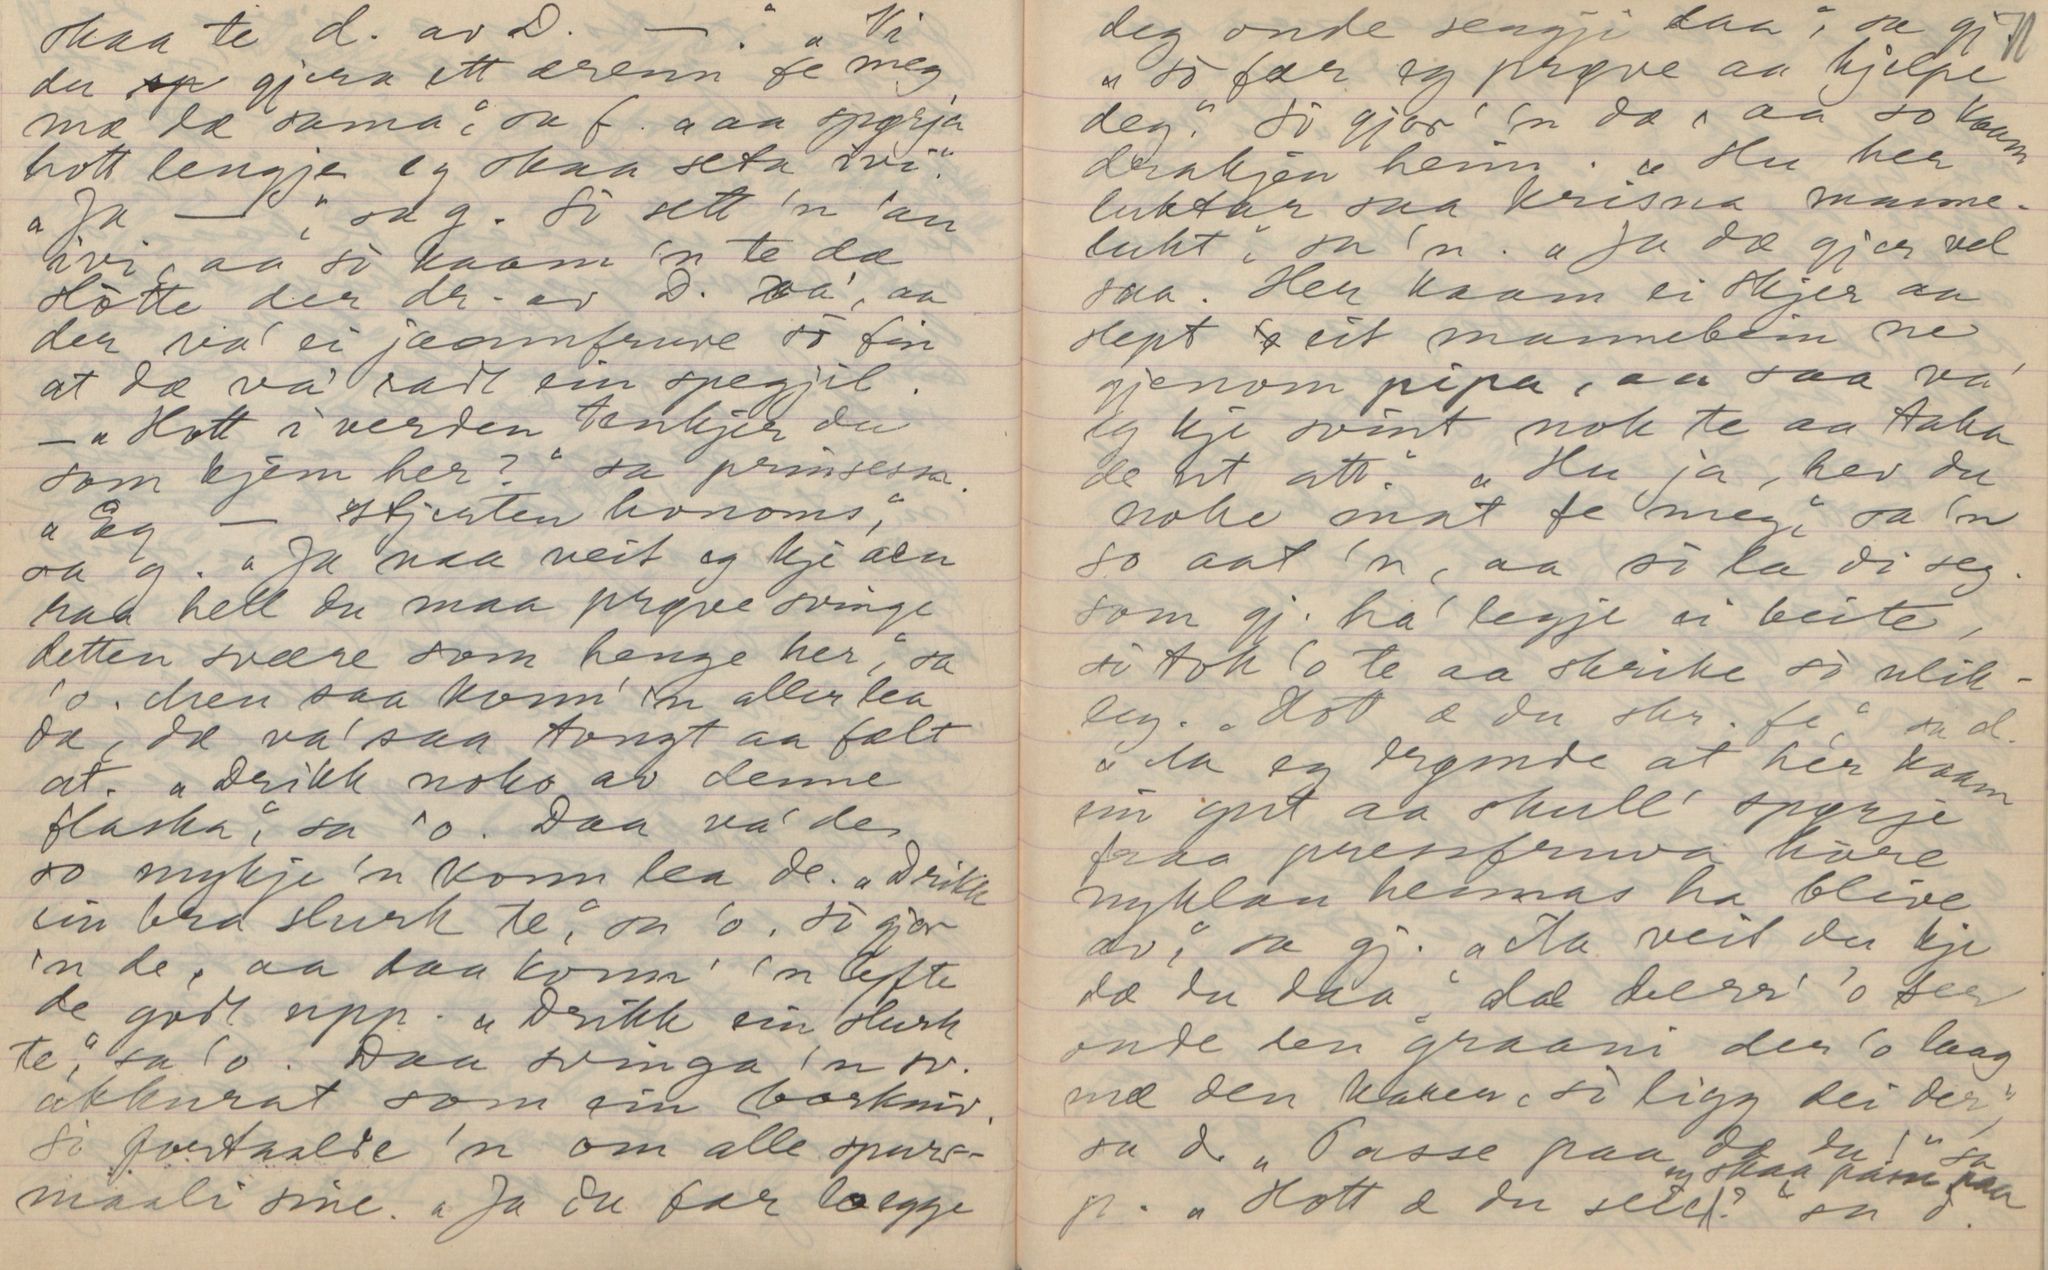 skaa te d. av D. — ." „Vi
du gjera ett ærenn fe meg
mæ dæ sama", sa f. „aa spørja
hott lengje eg skaa seta ivi".
„Ja —", sa g. Sò sett 'n 'an
ivi, aa sò kaam 'n te dæ
slòtte der dr. av D. va', aa
der va' ei jaamfruve sò fin
at dæ va' radt ein spegjil.
— „Hott i verden tenkjer du
som kjem her?" sa prinsessa.
„Eg — Hjarten honoms",
sa g. „Ja naa veit eg kje aen
raa hell du maa prøve svinge
detten svære som henge her", sa
'o. Men saa konn 'n aller lea
dæ, dæ va' saa tongt aa fælt
at. „Drikk noko av denne
flaska", sa 'o. Daa va' de
so mykje 'n konn lea de. „Drikk
ein bra slurk te", sa 'o. Sò gjor
'n de, aa daa konn' 'n lyfte
de godt upp. „Drikk ein slurk
te", sa 'o. Daa svinga 'n sv.
akkurat som ein borkniv.
Sò fortaalde 'n om alle spurs-
maali sine. „Ja du fær leggje
deg onde sengji daa", sa gj.
„sò fær eg prøve aa hjelpe
deg." Sò gjor' 'n dæ, aa so kaam
drakjen heim. „Hu her
luktar saa krisna manne-
lukt", sa 'n. „Ja dæ gjer vel
saa. Her kaam ei skjer aa
slept eit mannebein ne
gjenom pipa, aa saa va'
eg kje svint nok te aa taka
de ut att." „Hu ja, hev du
noke mat fe meg", sa 'n
so aat 'n, aa sò la di seg.
som gj. ha' legje ei beite,
sò tok 'o te aa skrike sò ulik-
leg. „Hot æ du skr. fe", sa d.
„Aa eg drømde at her kaam
ein gut aa skull' spørje
fraa presfruva hòre
nyklan hennas ha blive
av", sa gj. „Aa veit du kje
dæ du daa", dæ derr' 'o ser
onde den graani der 'o laag
mæ den karen, sò ligg dei der",
sa d. „Passe paa dæ du!" sa
p. „Hott æ du seie?" „eg skaa passa paa" sa d.